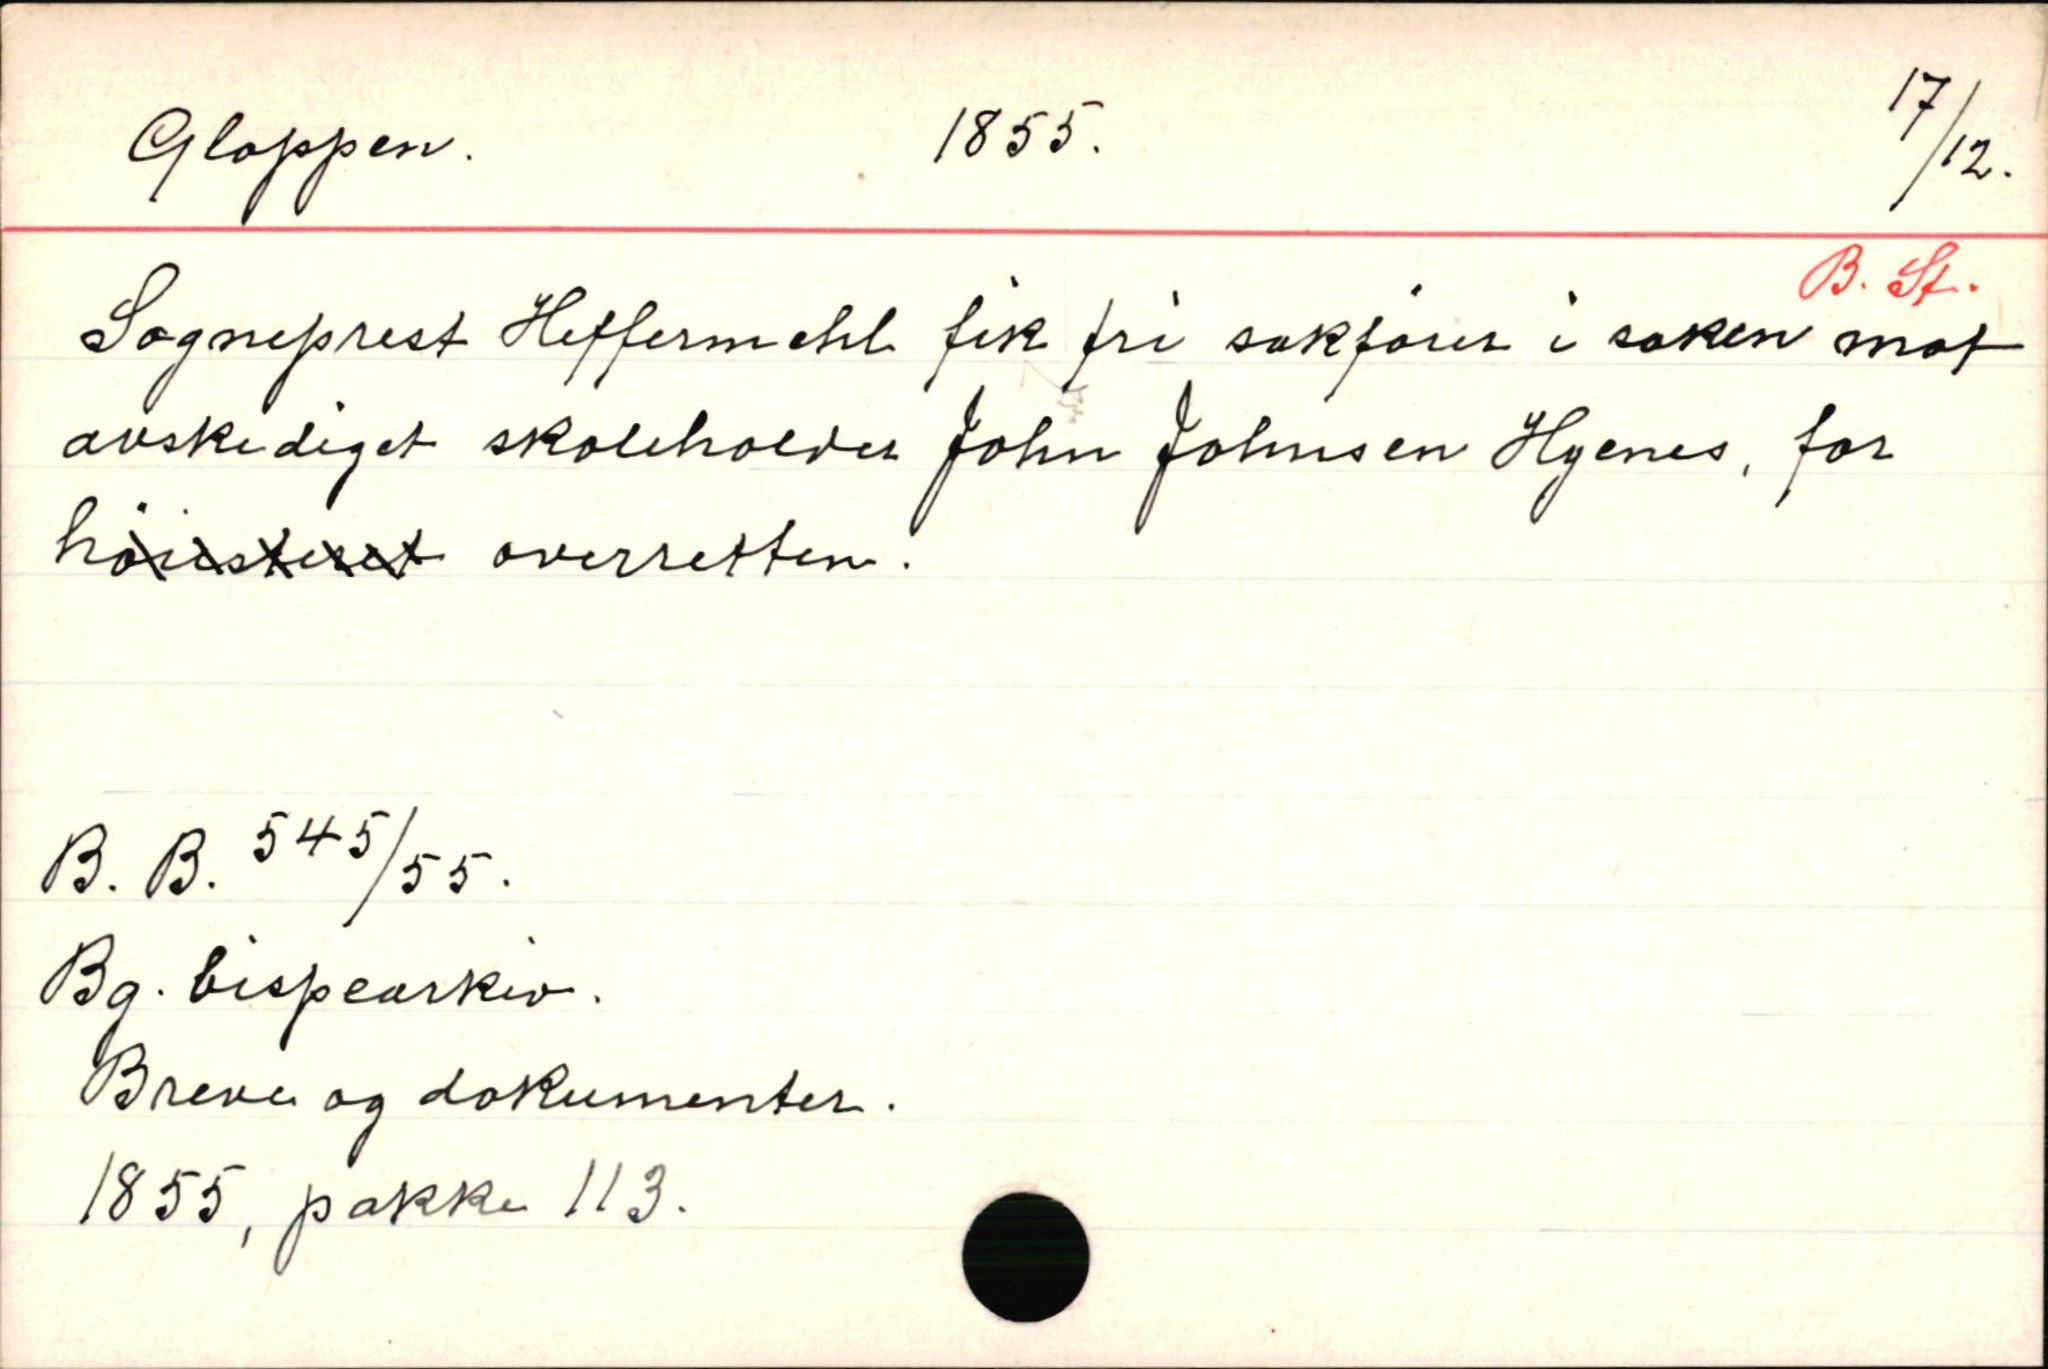 Gloppen. 1855. 17/12.
B. St.
Sogneprest Heffermehl fik fri sakförer i saken mot
avskediget skoleholder John Johnsen Hyenes, for
höiesteret overretten.
B. B. 545/55.
Bg. bispearkiv.
Breve og dokumenter.
1855, pakke 113.